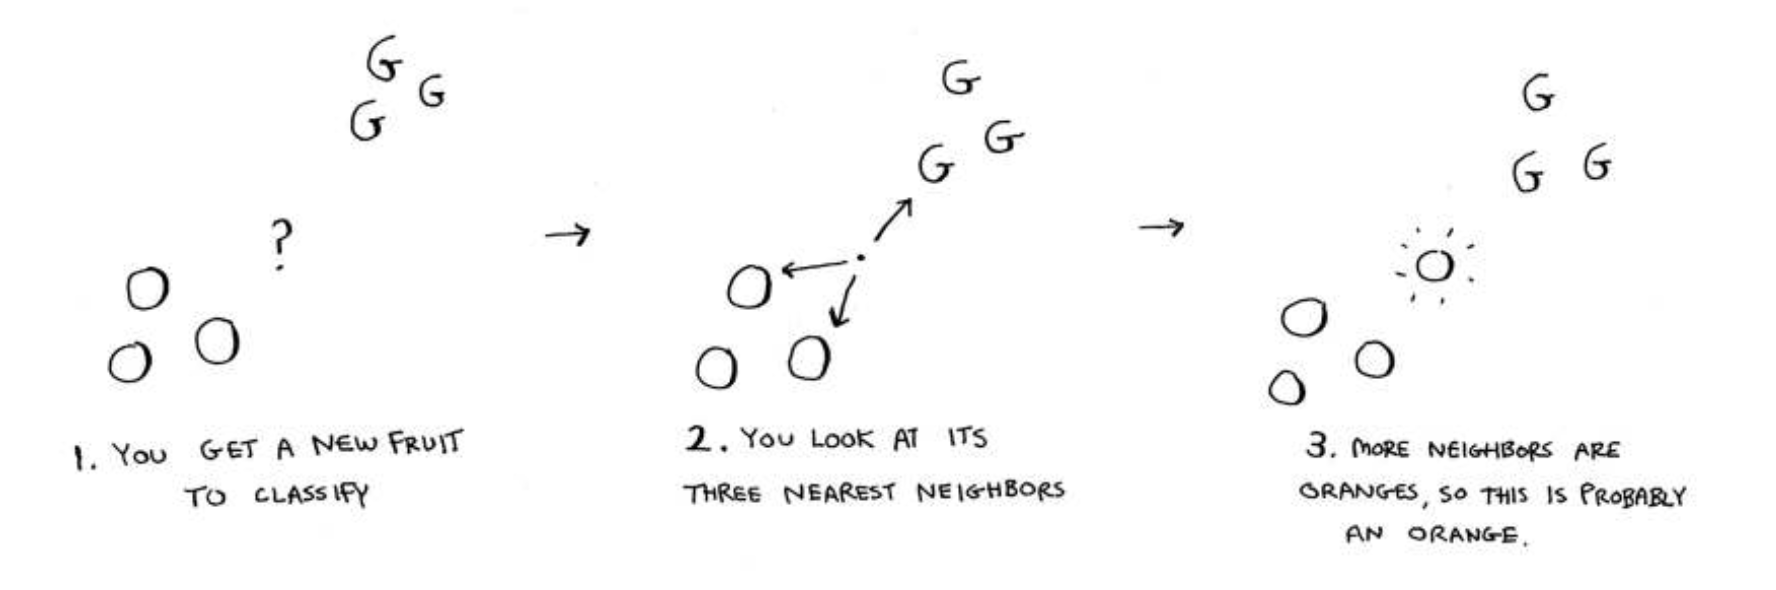 G
G
G
?
1. YOU GET A NEW FRUIT
TO CLASSIFY
G
G
G
2. YOU LOOK AT ITS
THREE NEAREST NEIGHBORS
G
G
G
3. MORE NEIGHBORS ARE
ORANGES, SO THIS IS PROBABLY
AN ORANGE.